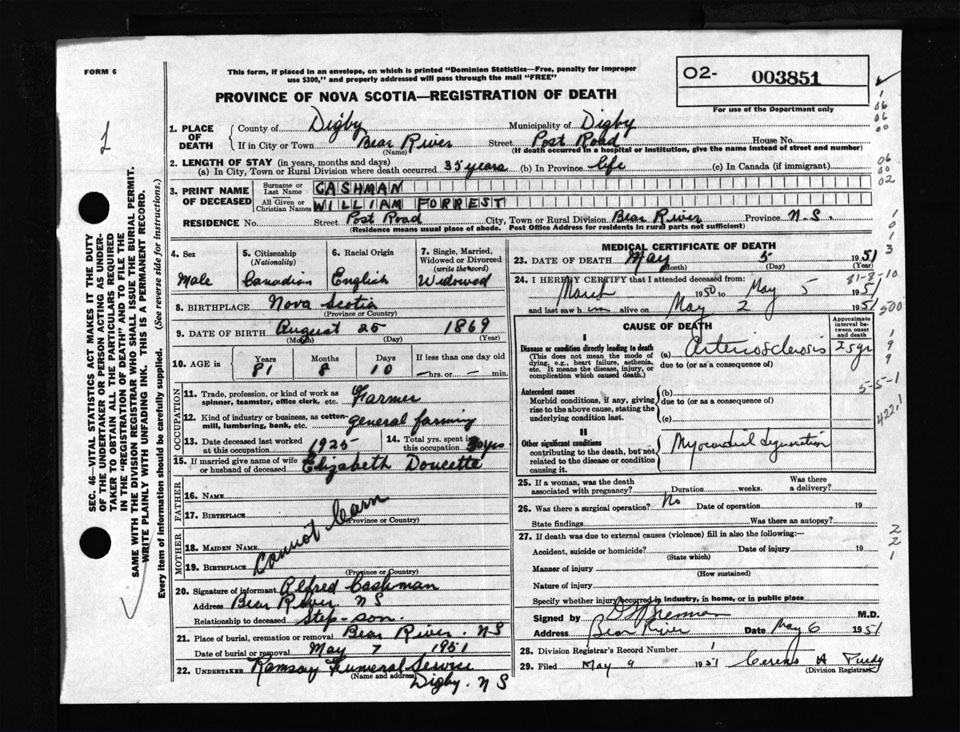 FORM 6
This form, if placed in an envelope, on which is printed "Dominion Statistics—Free, penalty for improper
use $300," and properly addressed will pass through the mail "FREE"
O2- 003851
For use of the Department only
PROVINCE OF NOVA SCOTIA—REGISTRATION OF DEATH
1. PLACE OF DEATH
County of Digby Municipality of Digby
If in City or Town Bear River Street Post Road House No.
(Name) (If death occurred in a hospital or institution, give the name instead of street and number)
2. LENGTH OF STAY (in years, months and days)
(a) In City, Town or Rural Division where death occurred 35 years (b) In Province life (c) In Canada (if immigrant)
3. PRINT NAME OF DECEASED
Surname or Last Name CASHMAN
All Given or Christian Names WILLIAM FORREST
RESIDENCE No. Street Post Road City, Town or Rural Division Bear River Province N.S.
(Residence means usual place of abode. Post Office Address for residents in rural parts not sufficient)
4. Sex Male
5. Citizenship (Nationality) Canadian
6. Racial Origin English
7. Single, Married, Widowed or Divorced (write the word) Widowed
8. BIRTHPLACE Nova Scotia
(Province or Country)
9. DATE OF BIRTH August 25 1869
(Month) (Day) (Year)
10. AGE in Years Months Days If less than one day old
81 8 10 hrs. or min.
OCCUPATION
11. Trade, profession, or kind of work as spinner, teamster, office clerk, etc. Farmer
12. Kind of industry or business, as cotton-mill, lumbering, bank, etc. general farming
13. Date deceased last worked at this occupation 1925
14. Total yrs. spent in this occupation 30 yrs
15. If married give name of wife or husband of deceased Elizabeth Doucette
FATHER
16. Name
17. Birthplace
(Province or Country)
Cannot Learn
MOTHER
18. Maiden Name
19. Birthplace
(Province or Country)
20. Signature of informant Alfred Cashman
Address Bear River NS
Relationship to deceased Step-son.
21. Place of burial, cremation or removal Bear River. NS
Date of burial or removal May 7 1951
22. UNDERTAKER Ramsay Funeral Service
(Name and address)
Digby. N S
MEDICAL CERTIFICATE OF DEATH
23. DATE OF DEATH May 5 1951
(Month) (Day) (Year)
81-8-10
24. I HEREBY CERTIFY that I attended deceased from:
March 1950 to May 5 1951
and last saw h im alive on May 2 1951
CAUSE OF DEATH
Approximate interval between onset and death
I
Disease or condition directly leading to death (a) Arteriosclerosis
(This does not mean the mode of dying, e.g., heart failure, asthenia, etc. It means the disease, injury, or complication which caused death.)
due to (or as a consequence of)
Antecedent causes (b)
Morbid conditions, if any, giving rise to the above cause, stating the underlying condition last.
due to (or as a consequence of)
(c)
5-5-1
422.1
II
Other significant conditions
contributing to the death, but not related to the disease or condition causing it.
Myocardial degeneration
25. If a woman, was the death associated with pregnancy? Duration weeks. Was there a delivery?
26. Was there a surgical operation? No Date of operation 19
State findings Was there an autopsy?
27. If death was due to external causes (violence) fill in also the following:—
Accident, suicide or homicide? Date of injury 19
(State which)
Manner of injury
(How sustained)
Nature of injury
Specify whether injury occurred in industry, in home, or in public place
Signed by Brennan M.D.
Address Bear River Date May 6 1951
28. Division Registrar's Record Number 1
29. Filed May 9 1951 Cereno A Purdy
(Division Registrar)
SEC. 46—VITAL STATISTICS ACT MAKES IT THE DUTY
OF THE UNDERTAKER OR PERSON ACTING AS UNDERTAKER TO OBTAIN ALL THE PARTICULARS REQUIRED
IN THE "REGISTRATION OF DEATH" AND TO FILE THE
SAME WITH THE DIVISION REGISTRAR WHO SHALL ISSUE THE BURIAL PERMIT.
WRITE PLAINLY WITH UNFADING INK. THIS IS A PERMANENT RECORD.
Every item of information should be carefully supplied. (See reverse side for instructions.)